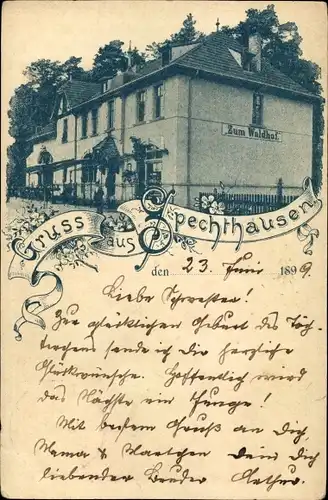 Zum Waldhof.
Gruss aus Spechthausen
den 23. Juni 1899.
Liebe Schwester!
Zur glücklichen Geburt des Töch-
terchens sende ich die herzliche
Glückwünsche. Hoffentlich wird
das Nächste ein Junge!
Mit bestem Gruß an Dich,
Mama & Martchen Dein Dich
liebender Bruder Arthur.